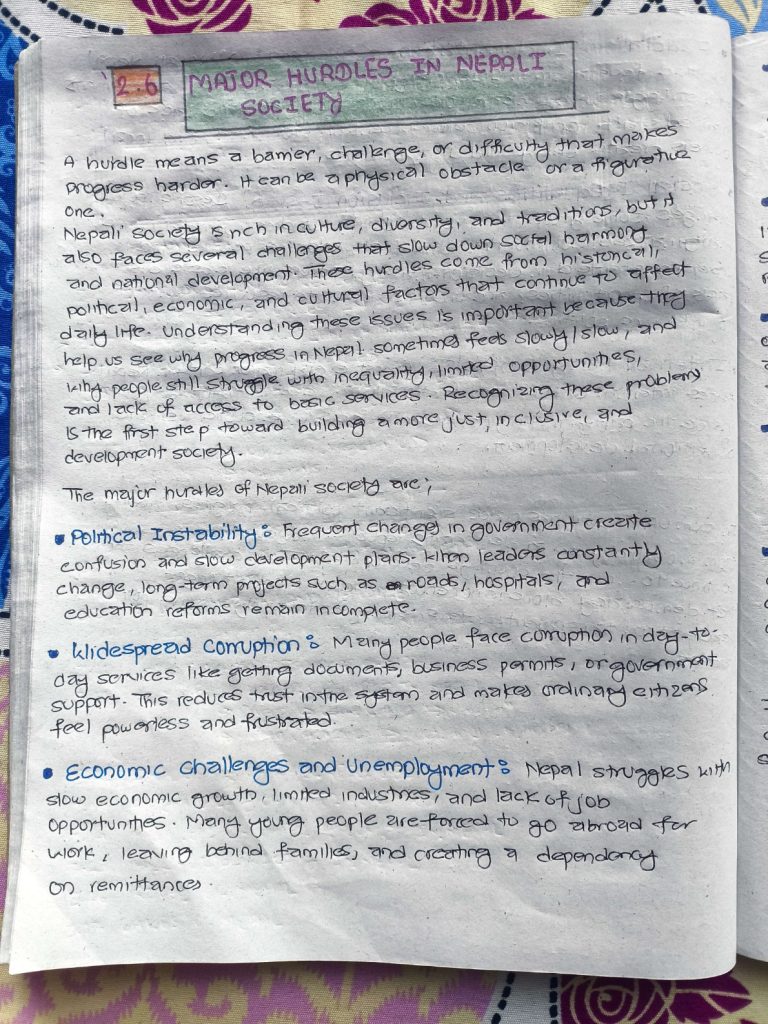 2.6 MAJOR HURDLES IN NEPALI
SOCIETY
A hurdle means a barrier, challenge, or difficulty that makes
progress harder. It can be a physical obstacle or a figurative
one.
Nepali society is rich in culture, diversity, and traditions, but it
also faces several challenges that slow down social harmony
and national development. These hurdles come from historical,
political, economic, and cultural factors that continue to affect
daily life. Understanding these issues is important because they
help us see why progress in Nepal sometimes feels slowly/slow, and
why people still struggle with inequality, limited opportunities,
and lack of access to basic services. Recognizing these problems
is the first step toward building a more just, inclusive, and
development society.
The major hurdles of Nepali society are;
• Political Instability: Frequent changes in government create
confusion and slow development plans. When leaders constantly
change, long-term projects such as roads, hospitals, and
education reforms remain incomplete.
• Widespread Corruption: Many people face corruption in day-to-
day services like getting documents, business permits, or government
support. This reduces trust in the system and makes ordinary citizens
feel powerless and frustrated.
• Economic challenges and Unemployment: Nepal struggles with
slow economic growth, limited industries, and lack of job
opportunities. Many young people are forced to go abroad for
work, leaving behind families, and creating a dependency
on remittances.